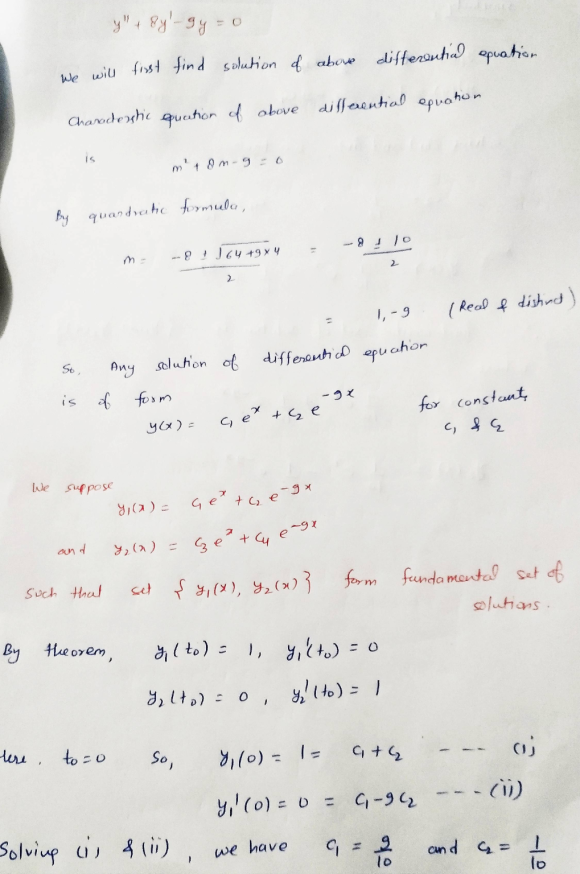 y'' + 8y' - 9y = 0
We will first find solution of above differential equation
Characteristic equation of above differential equation
is
m² + 8m - 9 = 0
By quandratic formula,
m = (-8 ± √(64 + 9×4))/2 = (-8 ± 10)/2
= 1, -9 (Real & distinct)
So, Any solution of differential equation
is of form
y(x) = c₁ e^x + c₂ e^(-9x) for constants c₁ & c₂
We suppose
y₁(x) = c₁ e^x + c₂ e^(-9x)
and y₂(x) = c₃ e^x + c₄ e^(-9x)
Such that set { y₁(x), y₂(x) } form fundamental set of
solutions.
By theorem, y₁(t₀) = 1, y₁'(t₀) = 0
y₂(t₀) = 0, y₂'(t₀) = 1
Here, t₀ = 0 So, y₁(0) = 1 = c₁ + c₂ ---- (i)
y₁'(0) = 0 = c₁ - 9c₂ --- (ii)
Solving (i) & (ii), we have c₁ = 9/10 and c₂ = 1/10